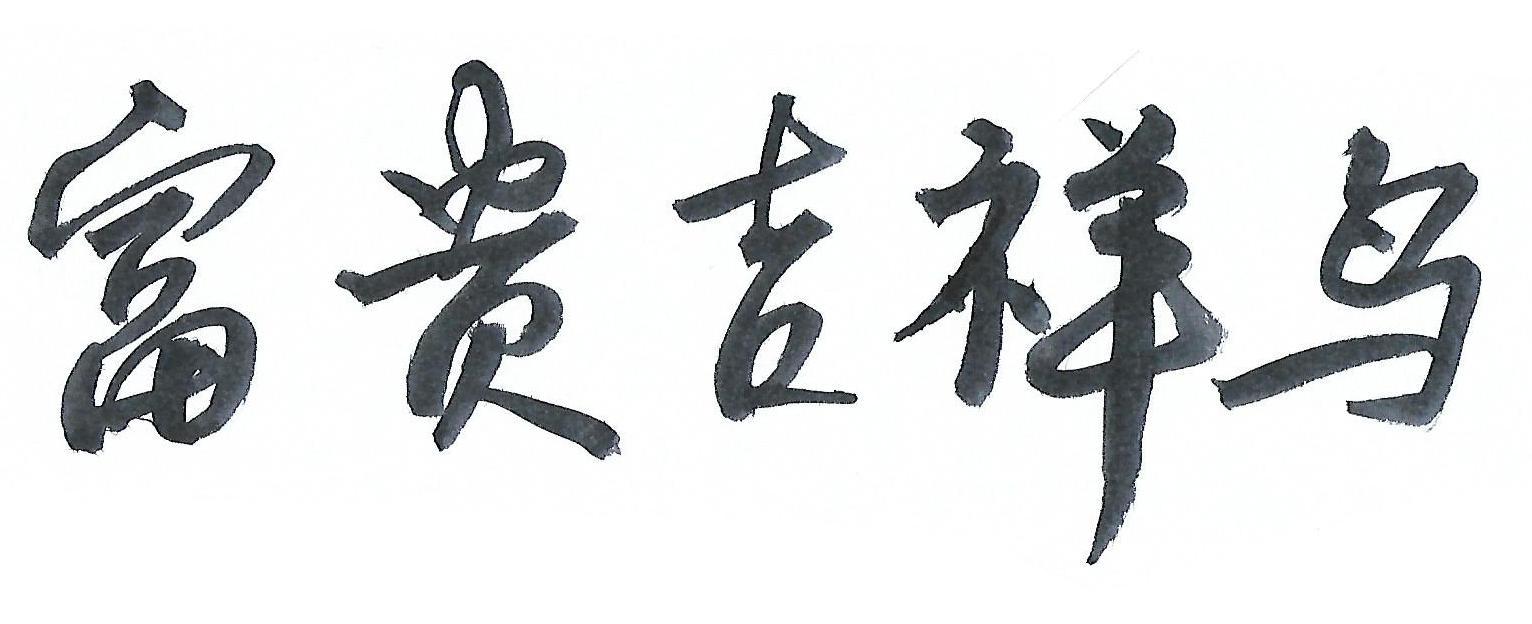 富贵吉祥鸟